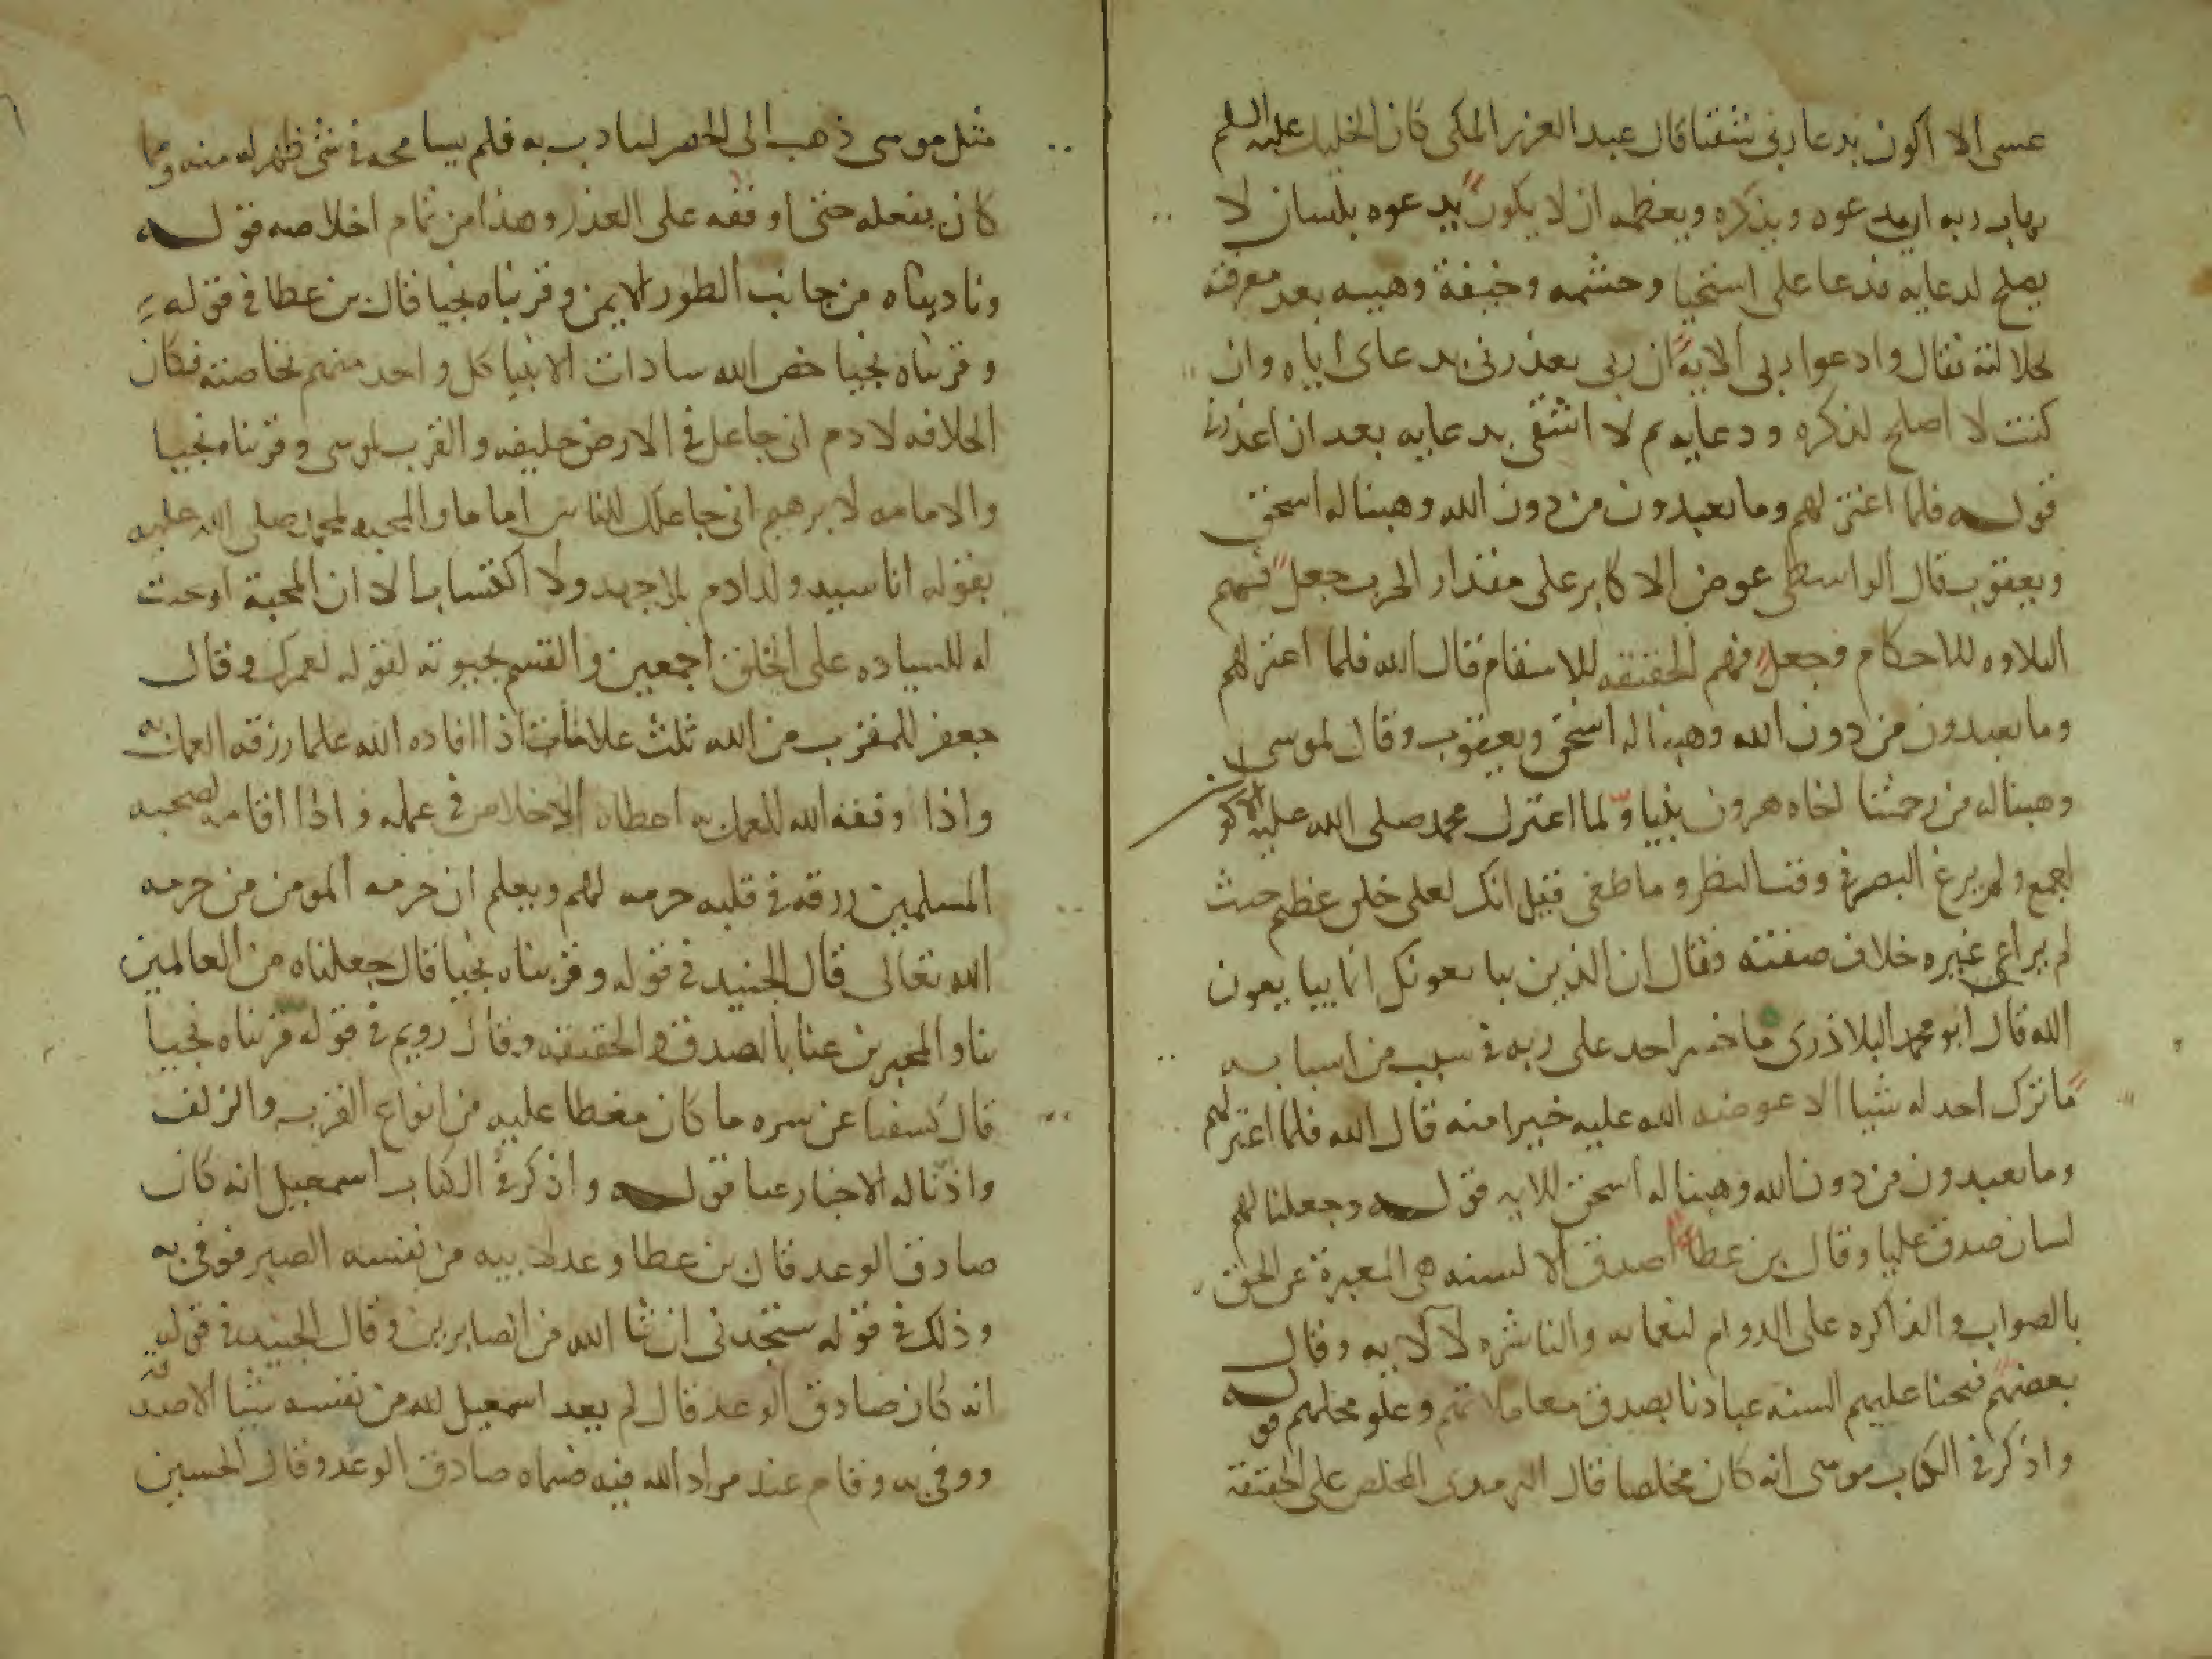 عسى الا اكون بدعا ربى شقيا قال عبد العزيز المكى كان الخليل عليه السلم
يهاب ربه ان يدعوه ويذكره ويعظمه ان لا يكون يدعوه بلسان لا
يصلح لدعايه فدعا على استحيا وحشمه وخيفة وهيبه بعد معرفته
بجلالته فقال وادعوا ربى الاية ان ربى يعذرنى بدعاى اياه وان
كنت لا اصلح لذكره ودعايه ثم لا اشقى بدعايه بعد ان اعذرنى
قوله فلما اعتزلهم وما يعبدون من دون الله وهبنا له اسحق
ويعقوب قال الواسطى عوض الاكابر على مقدار الحرب جعل فهم
التلاوه للاحكام وجعل فهم الحقيقه للاسقام قال الله فلما اعتزلهم
وما يعبدون من دون الله وهبنا له اسحق ويعقوب وقال لموسى
وهبنا له من رحمتنا اخاه هرون نبيا ولما اعتزل محمد صلى الله عليه الاكوان
اجمع ولم يزغ البصر فى وقت النظر وما طغى فقيل انك لعلى خلق عظيم حيث
لم يراعى غيره خلاف صفته فقال ان الذين يبايعونك انما يبايعون
الله قال ابو محمد البلاذرى ما خسر احد على ربه فى سبب من اسبابه
ما ترك احد له شيا الا عوضه الله عليه خيرا منه قال الله فلما اعتزلهم
وما يعبدون من دون الله وهبنا له اسحق الايه قوله وجعلنا لهم
لسان صدق عليا وقال بن عطا اصدق الالسنه هى المعبرة عن الحق
بالصواب والذاكره على الدوام لنعمايه والناشره لآلايه وقال
بعضهم فتحنا عليهم السنه عبادنا بصدق معاملاتهم وعلو محلهم قوله
واذكر فى الكتاب موسى انه كان مخلصا قال الترمذى المخلص على الحقيقة
مثل موسى ذهب الى الخضر ليتادب به فلم يسامحه فى شى ظهر له منه ومما
كان يفعله حتى اوقفه على العذر وهذا من تمام اخلاصه قوله
وناديناه من جانب الطور الايمن وقربناه نجيا قال بن عطا فى قوله
وقربناه نجيا خص الله سادات الانبيا كل واحد منهم بخاصته فكان
الخلافه لادم انى جاعل فى الارض خليفه والقرب لموسى وقربناه نجيا
والامامه لابرهيم انى جاعلك للناس اماما والمحبه لمحمد صلى الله عليه
بقوله انا سيد ولد ادم بلا جهد ولا اكتساب الا ان المحبة اوجبت
له السياده على الخلق اجمعين والقسم بحيوته لقوله لعمرك وقال
جعفر للمقرب من الله ثلث علامات اذا افاده الله علما رزقه العمل به
واذا وفقه الله للعمل به اعطاه الاخلاص فى عمله واذا اقامه لصحبه
المسلمين رزقه فى قلبه حرمه لهم ويعلم ان حرمه المومن من حرمه
الله تعالى قال الجنيد فى قوله وقربناه نجيا قال جعلناه من العالمين
بنا والمخبرين عنا بالصدق والحقيقه وقال رويم فى قوله قربناه نجيا
قال كشفنا عن سره ما كان مغطا عليه من انواع القرب والزلف
واذنا له الاخبار عنا قوله واذكر فى الكتاب اسمعيل انه كان
صادق الوعد قال بن عطا وعد لابيه من نفسه الصبر فوفى به
وذلك فى قوله ستجدنى ان شا الله من الصابرين وقال الجنيد فى قوله
انه كان صادق الوعد قال لم يعد اسمعيل لله من نفسه شيا الا صدق
ووفى به وقام عند مراد الله فيه فسماه صادق الوعد وقال الحسين